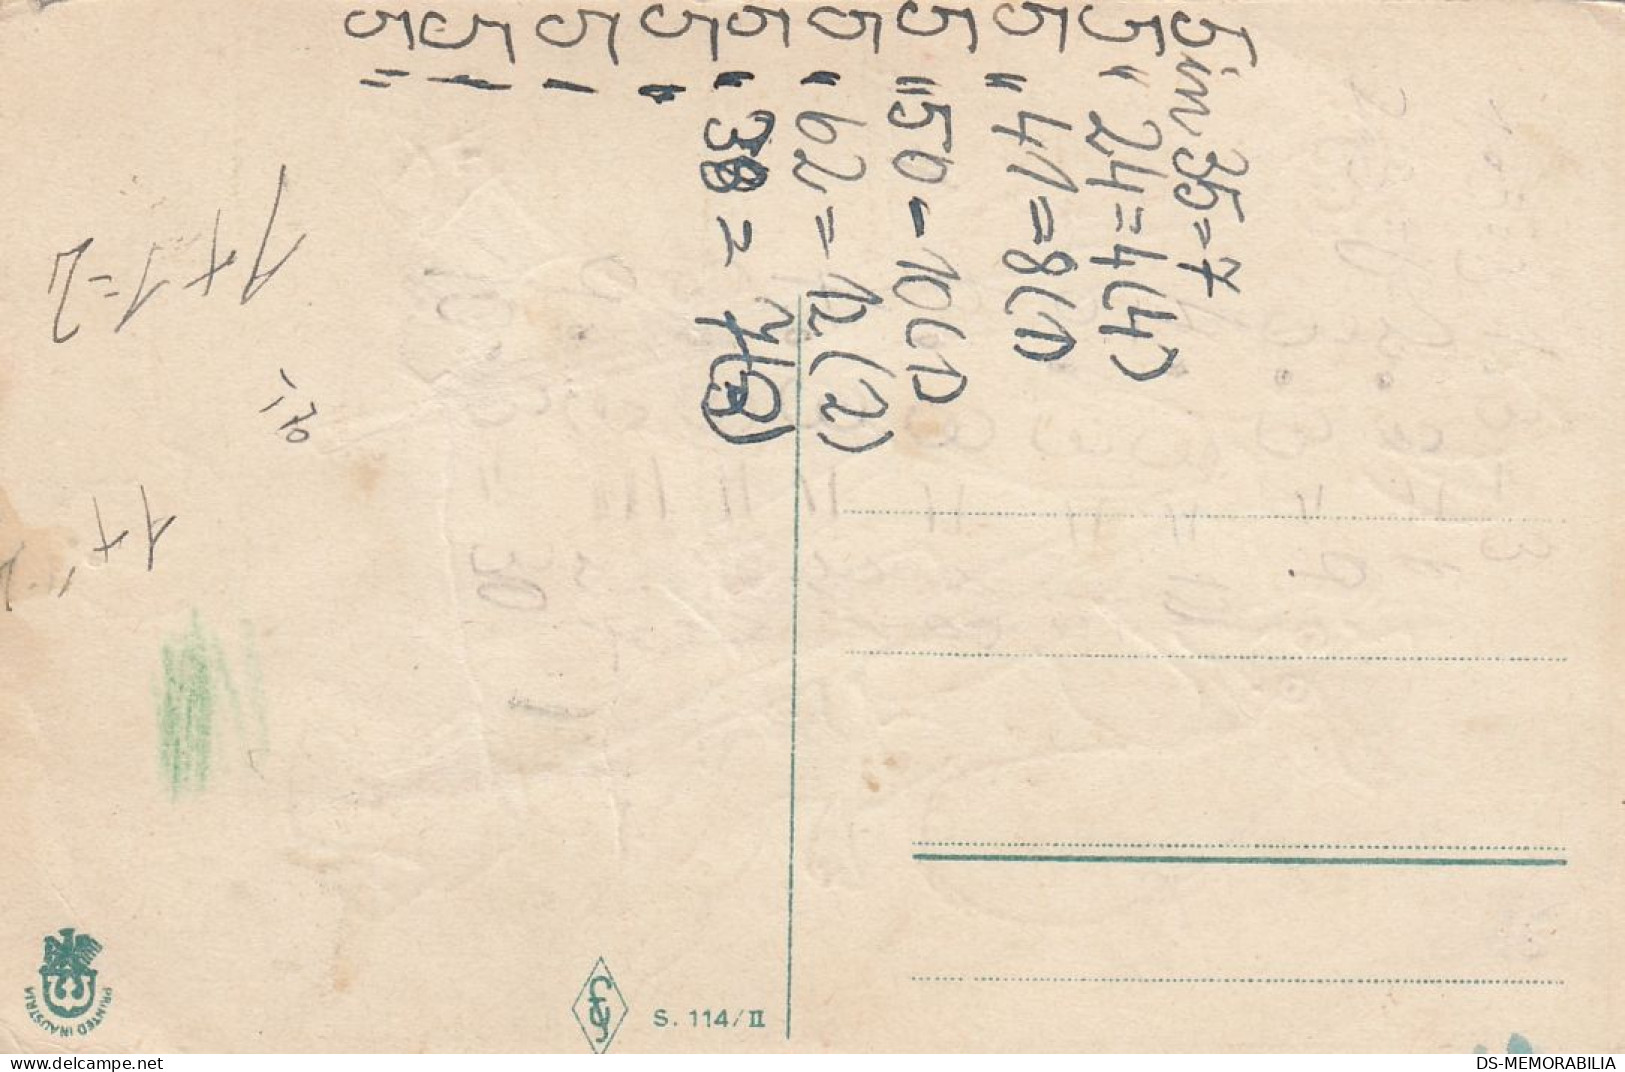 5 in 35=7
5 " 24=4(4)
5 " 41=8(1)
5 " 50-10(1)
5 " 62=12(2)
5 " 38= 7(3)
5 "
5 "
5 "
5 "
1+1=2
1+
30
PRINTED IN AUSTRIA
S. 114/II
delcampe.net
DS-MEMORABILIA